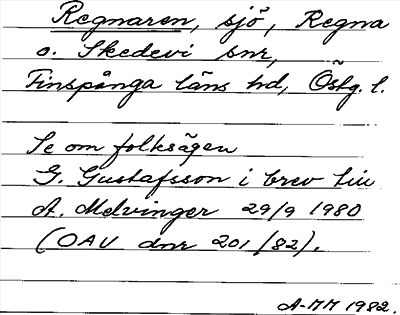 Regnaren, sjö, Regna
o. Skedevi snr,
Finspånga läns hd, Östg. l.
Se om folksägen
G. Gustafsson i brev till
A. Melvinger 29/9 1980
(OAU dnr 201/82).
A-MM 1982.